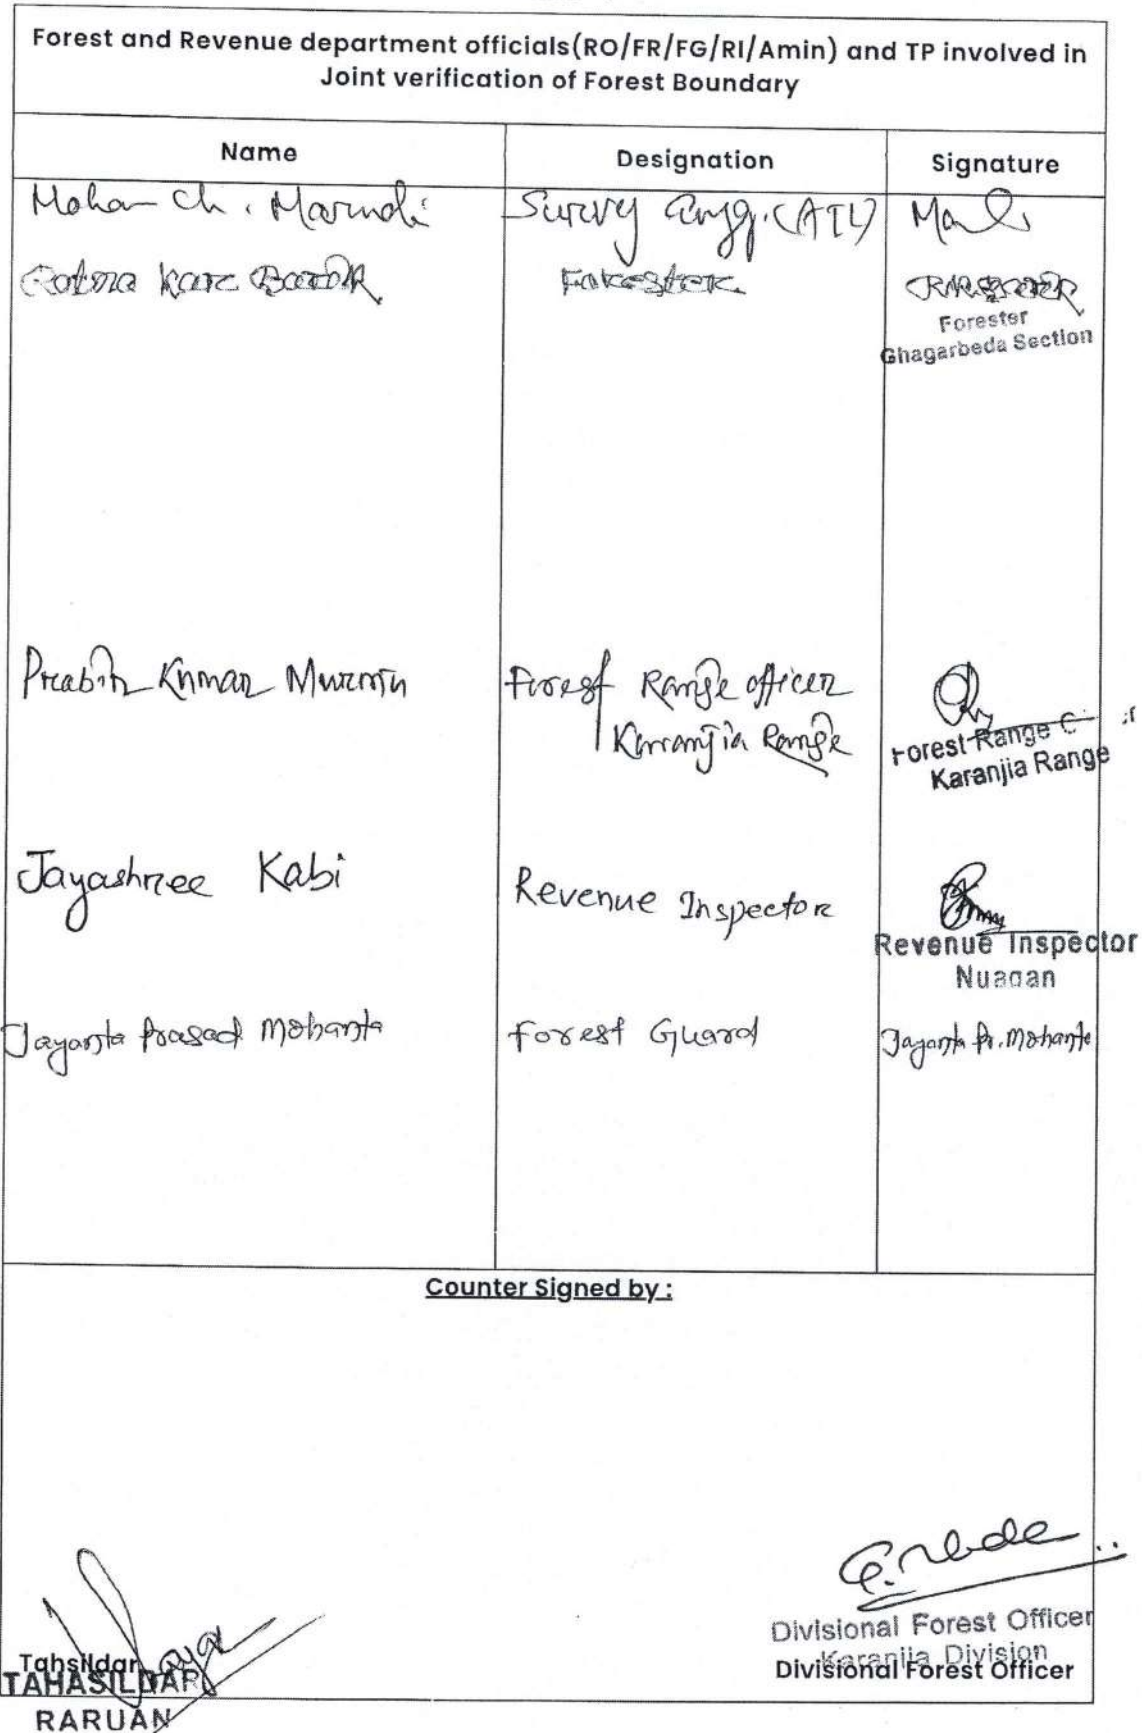 Forest and Revenue department officials(RO/FR/FG/RI/Amin) and TP involved in
Joint verification of Forest Boundary
Name Designation Signature
Mohan Ch. Marndi Survey Engg. (ATL)
Ratna Kar Barik Forester
Forester
Ghagarbeda Section
Prabir Kumar Murmu Forest Range officer
Karanjia Range
Forest Range
Karanjia Range
Jayashree Kabi Revenue Inspector
Revenue Inspector
Nuagan
Jayanta Prasad Mohanta Forest Guard Jayanta Pr. Mohanta
Counter Signed by :
Divisional Forest Officer
Karanjia Division
Tahsildar Divisional Forest Officer
TAHASILDAR
RARUAN